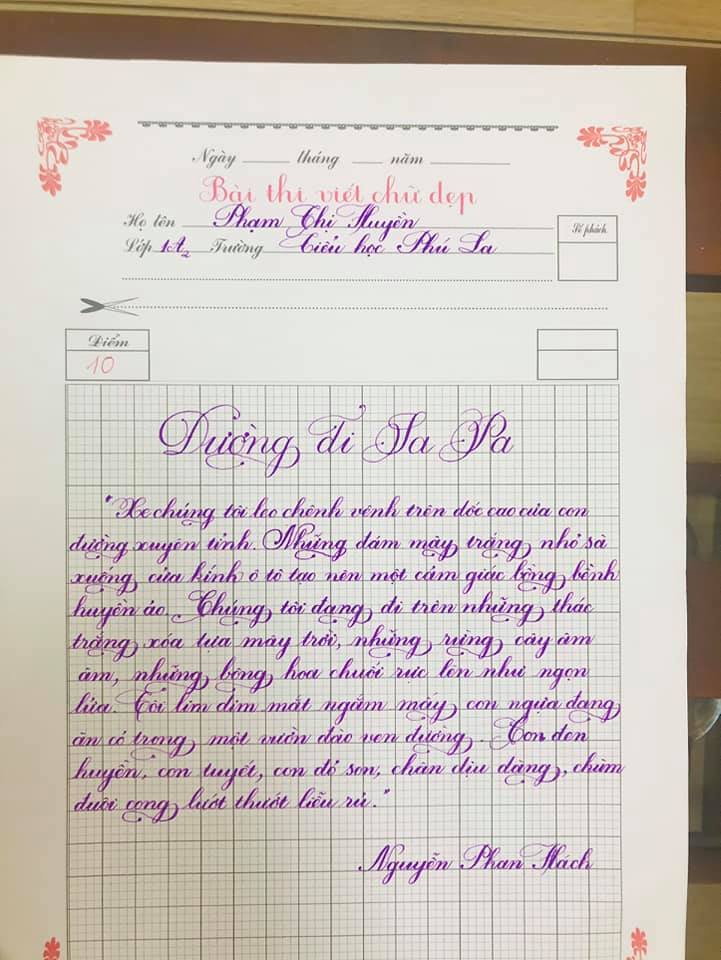 Ngày tháng năm
Bài thi viết chữ đẹp
Họ tên Phạm Thị Huyền
Số phách
Lớp 1A2 Trường Tiểu học Phú La
Điểm
10
Đường đi Sa Pa
"Xe chúng tôi leo chênh vênh trên dốc cao của con
đường xuyên tỉnh. Những đám mây trắng nhỏ sà
xuống cửa kính ô tô tạo nên một cảm giác bồng bềnh
huyền ảo. Chúng tôi đang đi trên những thác
trắng xóa tựa mây trời, những rừng cây âm
âm, những bông hoa chuối rực lên như ngọn
lửa. Tôi lim dim mắt ngắm mấy con ngựa đang
ăn cỏ trong một vườn đào ven đường. Con đen
huyền, con tuyết, con đỏ son, chân dịu dàng, chùm
đuôi cong lướt thướt liễu rủ."
Nguyễn Phan Hách